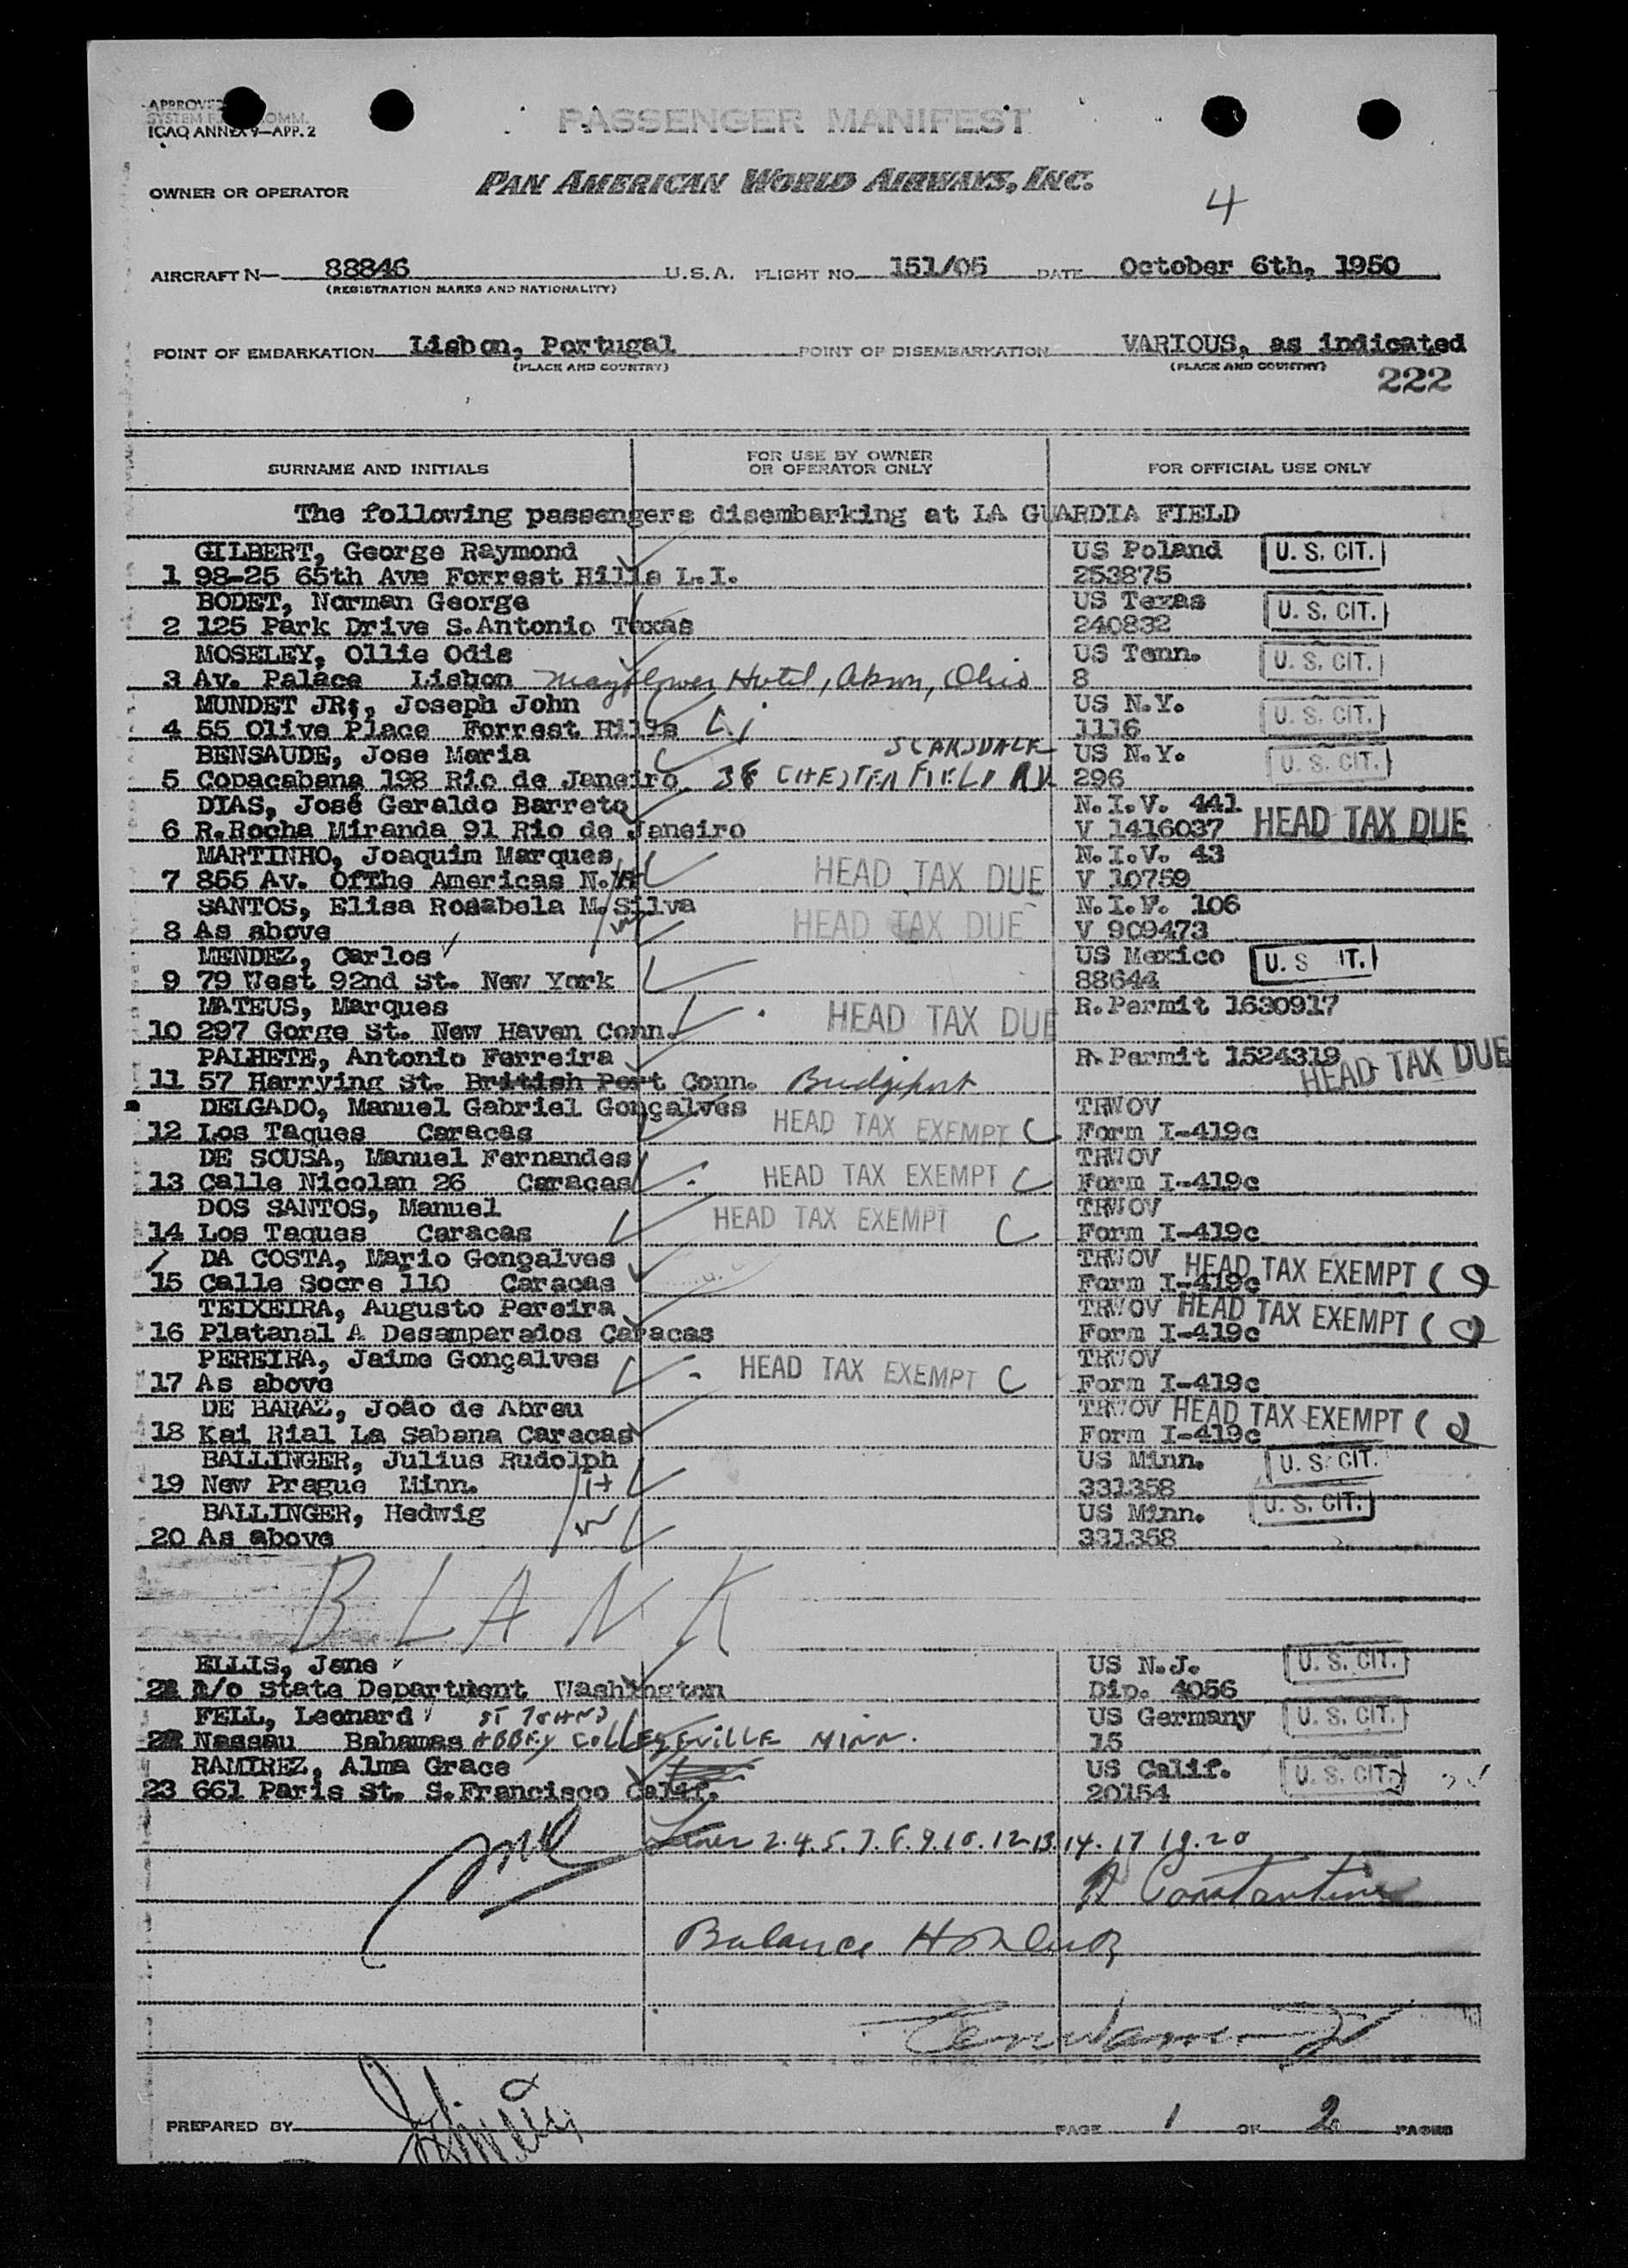 PASSENGER MANIFEST
APPROVED
SYSTEM COMM.
ICAO ANNEX 9—APP. 2
OWNER OR OPERATOR PAN AMERICAN WORLD AIRWAYS, INC.
4
AIRCRAFT N— 88846 U.S.A. FLIGHT NO. 151/05 DATE October 6th, 1950
(REGISTRATION MARKS AND NATIONALITY)
POINT OF EMBARKATION Lisbon, Portugal POINT OF DISEMBARKATION VARIOUS, as indicated
(PLACE AND COUNTRY) (PLACE AND COUNTRY)
222
SURNAME AND INITIALS FOR USE BY OWNER OR OPERATOR ONLY FOR OFFICIAL USE ONLY
The following passengers disembarking at LA GUARDIA FIELD
GILBERT, George Raymond US Poland U. S. CIT.
1 98-25 65th Ave Forrest Hills L.I. 253875
BODET, Norman George US Texas U. S. CIT.
2 125 Park Drive S.Antonio Texas 240832
MOSELEY, Ollie Odis US Tenn. U. S. CIT.
3 Av. Palace Lisbon Mayflower Hotel, Akron, Ohio 8
MUNDET JR:, Joseph John US N.Y. U. S. CIT.
4 55 Olive Place Forrest Hills L.i 1116
BENSAUDE, Jose Maria SCARSDALE US N.Y. U. S. CIT.
5 Copacabana 198 Rio de Janeiro. 38 CHESTERFIELD RD 296
DIAS, José Geraldo Barreto N.I.V. 441
6 R.Rocha Miranda 91 Rio de Janeiro V 1416037 HEAD TAX DUE
MARTINHO, Joaquim Marques N.I.V. 43
7 855 Av. OfThe Americas N.Y. H HEAD TAX DUE V 10759
SANTOS, Elisa Rosabela M.Silva N.I.V. 106
8 As above W HEAD TAX DUE V 909473
MENDEZ, Carlos US Mexico U. S IT.
9 79 West 92nd St. New York 88644
MATEUS, Marques R.Permit 1630917
10 297 Gorge St. New Haven Conn. HEAD TAX DUE
PALHETE, Antonio Ferreira R.Permit 1524319 HEAD TAX DUE
11 57 Harrying St. British Port Conn. Bridgeport
DELGADO, Manuel Gabriel Gonçalves TRWOV
12 Los Taques Caracas HEAD TAX EXEMPT C Form I-419c
DE SOUSA, Manuel Fernandes TRWOV
13 Calle Nicolan 26 Caracas HEAD TAX EXEMPT C Form I-419c
DOS SANTOS, Manuel TRWOV
14 Los Taques Caracas HEAD TAX EXEMPT C Form I-419c
DA COSTA, Mario Gonçalves TRWOV HEAD TAX EXEMPT
15 Calle Socre 110 Caracas Form I-419c
TEIXEIRA, Augusto Pereira TRWOV HEAD TAX EXEMPT
16 Platanal A Desamparados Caracas Form I-419c
PEREIRA, Jaime Gonçalves TRWOV
17 As above HEAD TAX EXEMPT C Form I-419c
DE BARAZ, João de Abreu TRWOV HEAD TAX EXEMPT
18 Kai Rial La Sabana Caracas Form I-419c
BALLINGER, Julius Rudolph US Minn. U. S. CIT.
19 New Prague Minn. H 331358
BALLINGER, Hedwig US Minn. U. S. CIT.
20 As above W 331358
BLANK
ELLIS, Jane US N.J. U. S. CIT.
21 A/o State Department Washington Dip. 4056
FELL, Leonard ST JOHNS US Germany U. S. CIT.
22 Nassau Bahamas ABBEY COLLEGEVILLE MINN. 15
RAMIREZ, Alma Grace US Calif. U. S. CIT.
23 661 Paris St. S.Francisco Calif. 20154
Lines 2.4.5.7.8.9.10.12.13.14.17 19.20
A Constantine
Balance
PREPARED BY PAGE 1 OF 2 PAGES